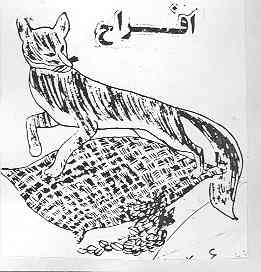 افراح